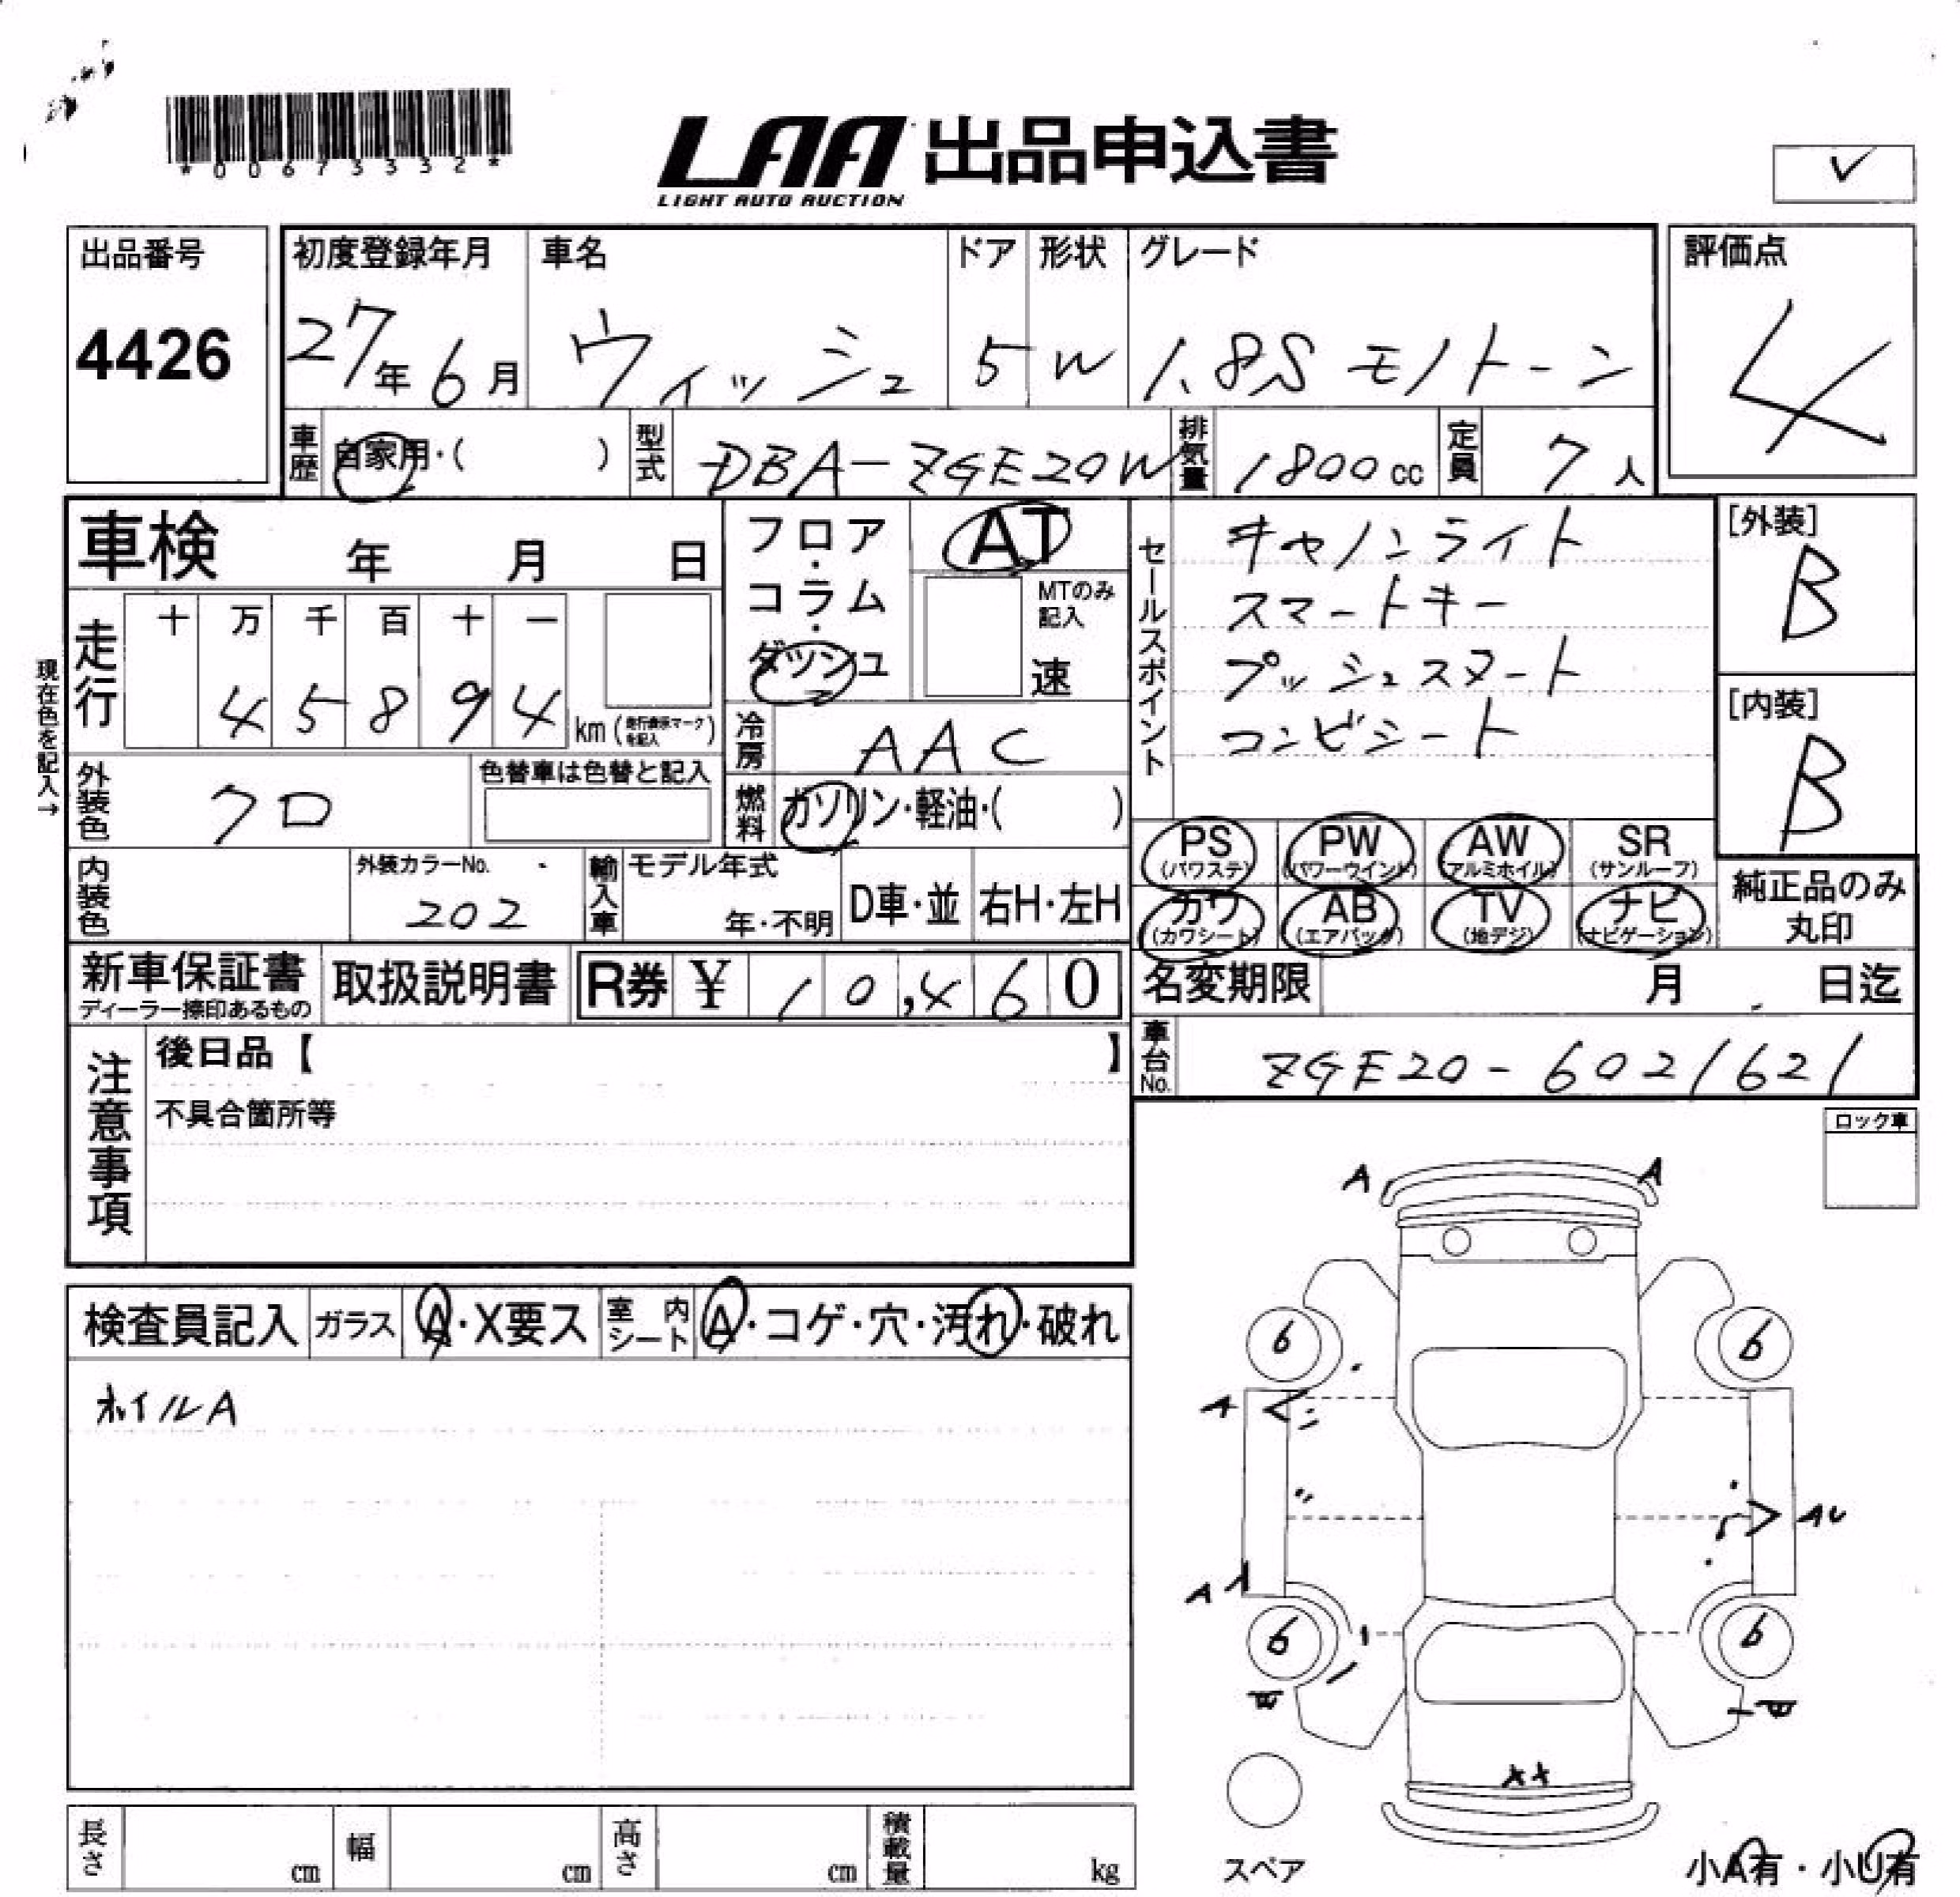 *00673332*
LAA 出品申込書
LIGHT AUTO AUCTION
✓
出品番号
4426
初度登録年月
27年6月
車名
ウィッシュ
ドア
5
形状
W
グレード
1.8S モノトーン
評価点
4
車歴 自家用・( )
型式 DBA-ZGE20W
排気量 1800cc
定員 7人
車検 年 月 日
フロア・コラム・ダッシュ
AT
MTのみ記入
速
セールスポイント
キセノンライト
スマートキー
プッシュスタート
コンビシート
[外装]
B
[内装]
B
現在色を記入→
走行
十 万 千 百 十 一
4 5 8 9 4
km(走行表示マークを記入)
冷房 AAC
外装色 クロ
色替車は色替と記入
燃料 ガソリン・軽油・( )
PS (パワステ)
PW (パワーウインド)
AW (アルミホイル)
SR (サンルーフ)
内装色
外装カラーNo.
202
輸入車
モデル年式
年・不明
D車・並
右H・左H
カワ (カワシート)
AB (エアバック)
TV (地デジ)
ナビ (ナビゲーション)
純正品のみ
丸印
新車保証書
ディーラー捺印あるもの
取扱説明書
R券 ¥ 10,460
名変期限 月 日迄
車台No. ZGE20-6021621
注意事項
後日品【 】
不具合箇所等
ロック車
検査員記入
ガラス A・X要ス
室内シート A・コゲ・穴・汚れ・破れ
ホイルA
A A
6 6
A
AU
A
6 6
スペア
長さ cm
幅 cm
高さ cm
積載量 kg
小A有・小U有